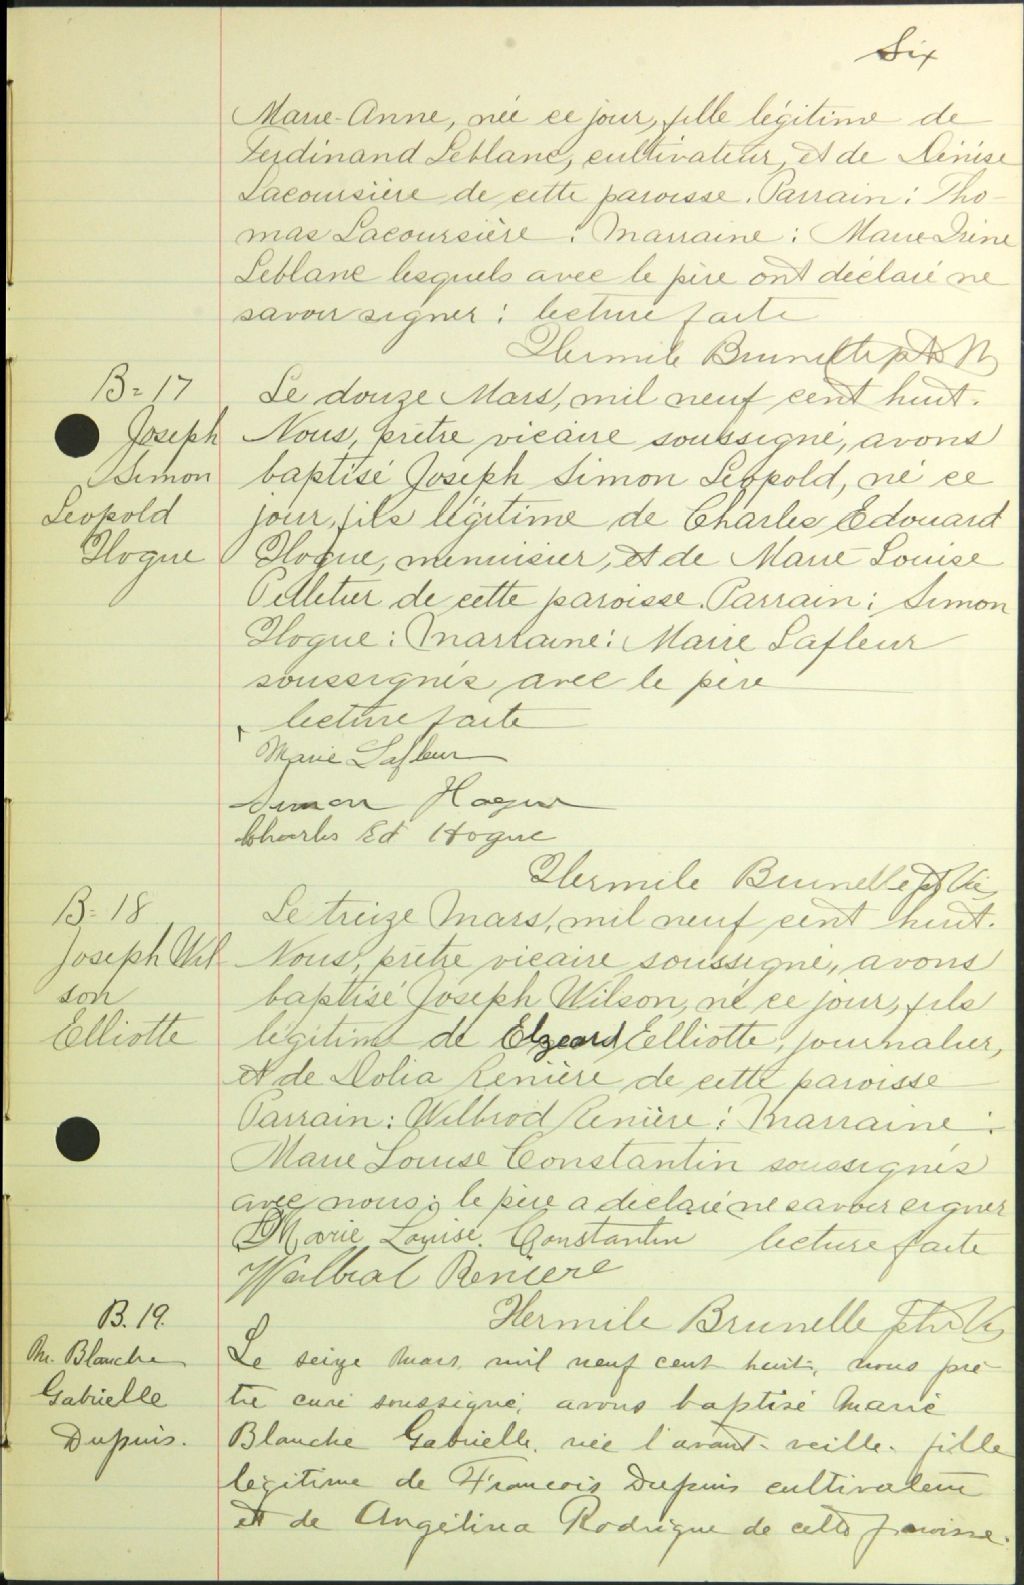 Six
Marie-Anne, née ce jour, fille légitime de
Ferdinand Leblanc, cultivateur, et de Dénise
Lacoursière de cette paroisse. Parrain: Tho-
mas Lacoursière: Marraine: Marie Irène
Leblanc lesquels avec le père ont déclaré ne
savoir signer: lecture faite
Hermile Brunelle ptr V
B=17
Joseph
Simon
Leopold
Hogue
Le douze Mars, mil neuf cent huit.
Nous, prêtre vicaire soussigné, avons
baptisé Joseph Simon Leopold, né ce
jour, fils légitime de Charles Edouard
Hogue, menuisier, et de Marie Louise
Pelletier de cette paroisse. Parrain: Simon
Hogue: Marraine: Marie Lafleur
soussignés avec le père
lecture faite
Marie Lafleur
Simon Hogue
Charles Ed Hogue
Hermile Brunelle ptr Vic
B=18
Joseph Wil
son
Elliotte
Le treize Mars, mil neuf cent huit.
Nous, prêtre vicaire soussigné, avons
baptisé Joseph Wilson, né ce jour, fils
légitime de Elzeard Elliotte, journalier,
et de Dolia Renière de cette paroisse
Parrain: Wilbrod Renière: Marraine:
Marie Louise Constantin soussignés
avec nous; le père a déclaré ne savoir signer
Marie Louise Constantin lecture faite
Renière
Hermile Brunelle ptr V
B. 19.
M. Blanche
Gabrielle
Dupuis.
Le seize mars mil neuf cent huit, nous prê-
tre curé soussigné, avons baptisé Marie
Blanche Gabrielle, née l'avant-veille, fille
légitime de Francois Dupuis cultivateur
et de Angélina Rodrigue de cette paroisse.